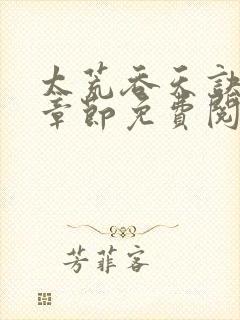 太荒吞天诀
章節免費閱
芳菲客